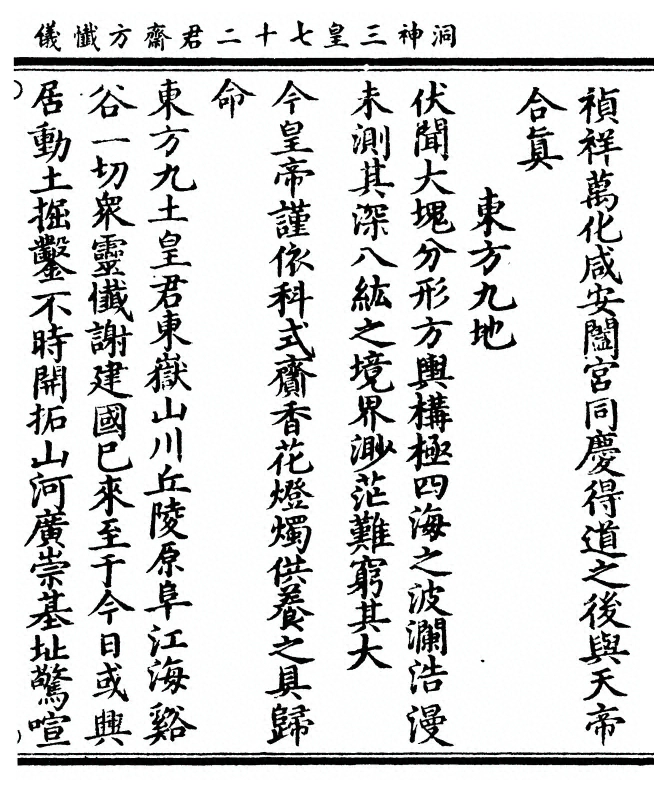 洞神三皇七十二君齋方懺儀
禎祥萬化咸安闔宮同慶得道之後與天帝
合眞
東方九地
伏聞大塊分形方輿構極四海之波瀾浩漫
未測其深八紘之境界渺茫難窮其大
今皇帝謹依科式齎香花燈燭供養之具歸
命
東方九土皇君東嶽山川丘陵原阜江海谿
谷一切衆靈懺謝建國已來至于今日或興
居動土掘鑿不時開拓山河廣崇基址驚喧